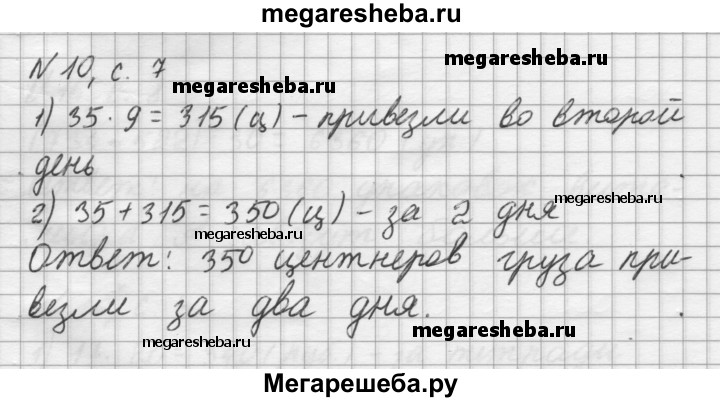 megaresheba.ru
N 10, с. 7
megaresheba.ru
megaresheba.ru
1) 35 · 9 = 315 (ц) - привезли во второй
день
2) 35 + 315 = 350 (ц) - за 2 дня
megaresheba.ru
megaresheba.ru
Ответ: 350 центнеров груза при-
везли за два дня.
megaresheba.ru
megaresheba.ru
Мегарешеба.ру